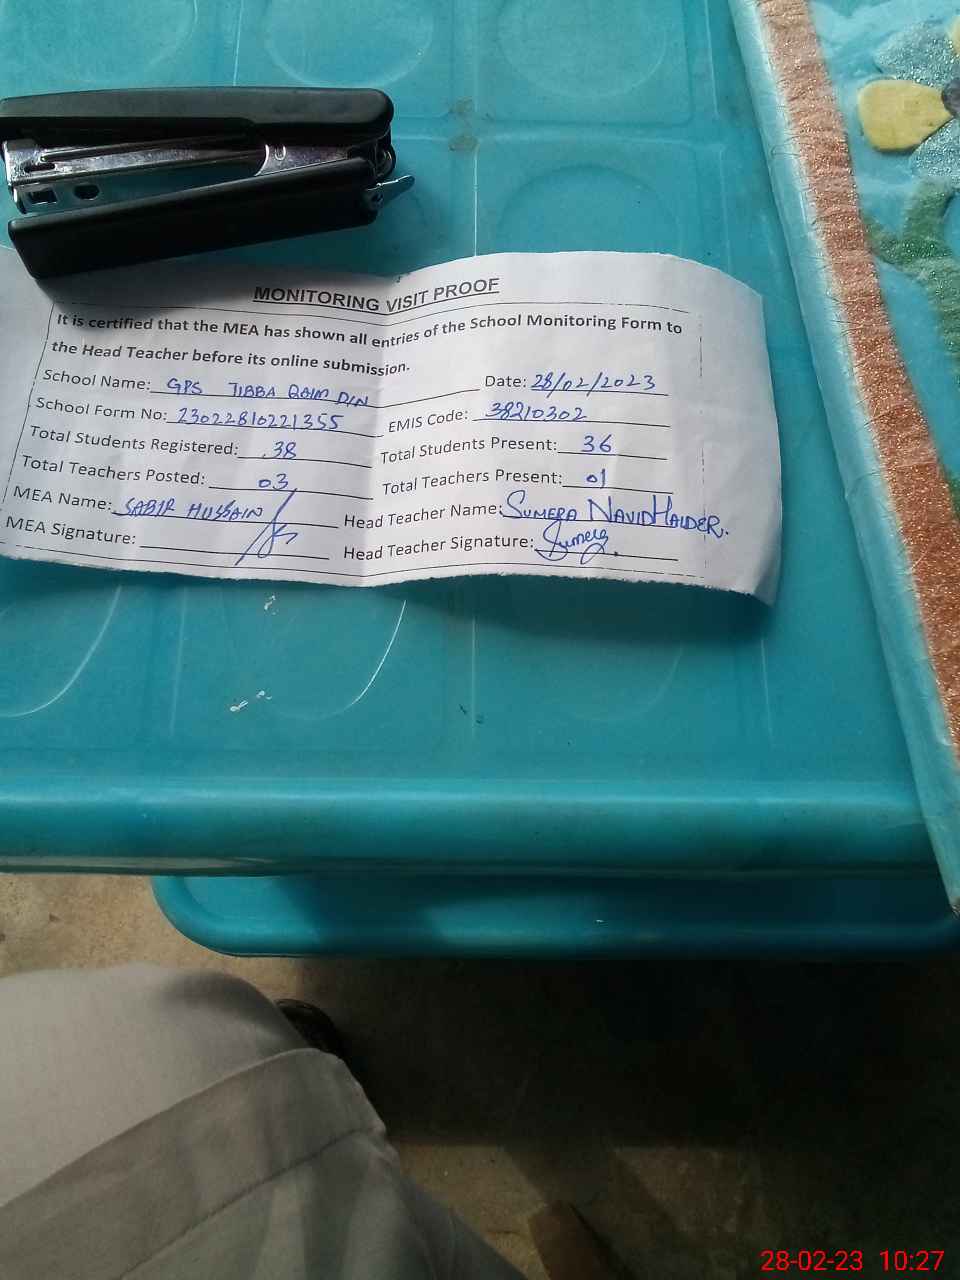 MONITORING VISIT PROOF
It is certified that the MEA has shown all entries of the School Monitoring Form to
the Head Teacher before its online submission.
School Name: GPS TIBBA QAIM DIN Date: 28/02/2023
School Form No: 23022810221355 EMIS Code: 38210302
Total Students Registered: 38 Total Students Present: 36
Total Teachers Posted: 03 Total Teachers Present: 01
MEA Name: SABIR HUSSAIN Head Teacher Name: SUMERA NAVID HAIDER.
MEA Signature: Head Teacher Signature: Sumera
28-02-23 10:27